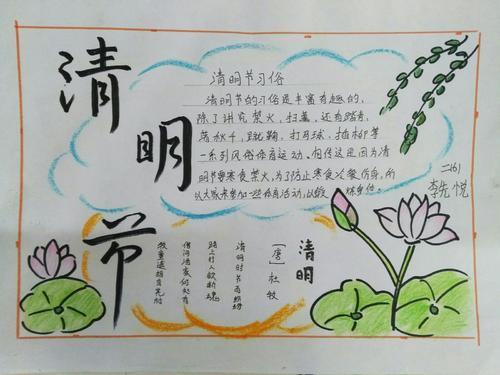 清明节
清明节习俗
清明节的习俗是丰富有趣的,
除了讲究禁火,扫墓,还有踏青,
荡秋千,蹴鞠,打马球,插柳等
一系列风俗体育运动,相传这是因为清
明节要寒食禁火,为了防止寒食冷餐伤身,所
以大家来参加一些体育活动,以锻炼身体。
二(6)
李先悦
清明
[唐]杜牧
清明时节雨纷纷
路上行人欲断魂
借问酒家何处有
牧童遥指杏花村